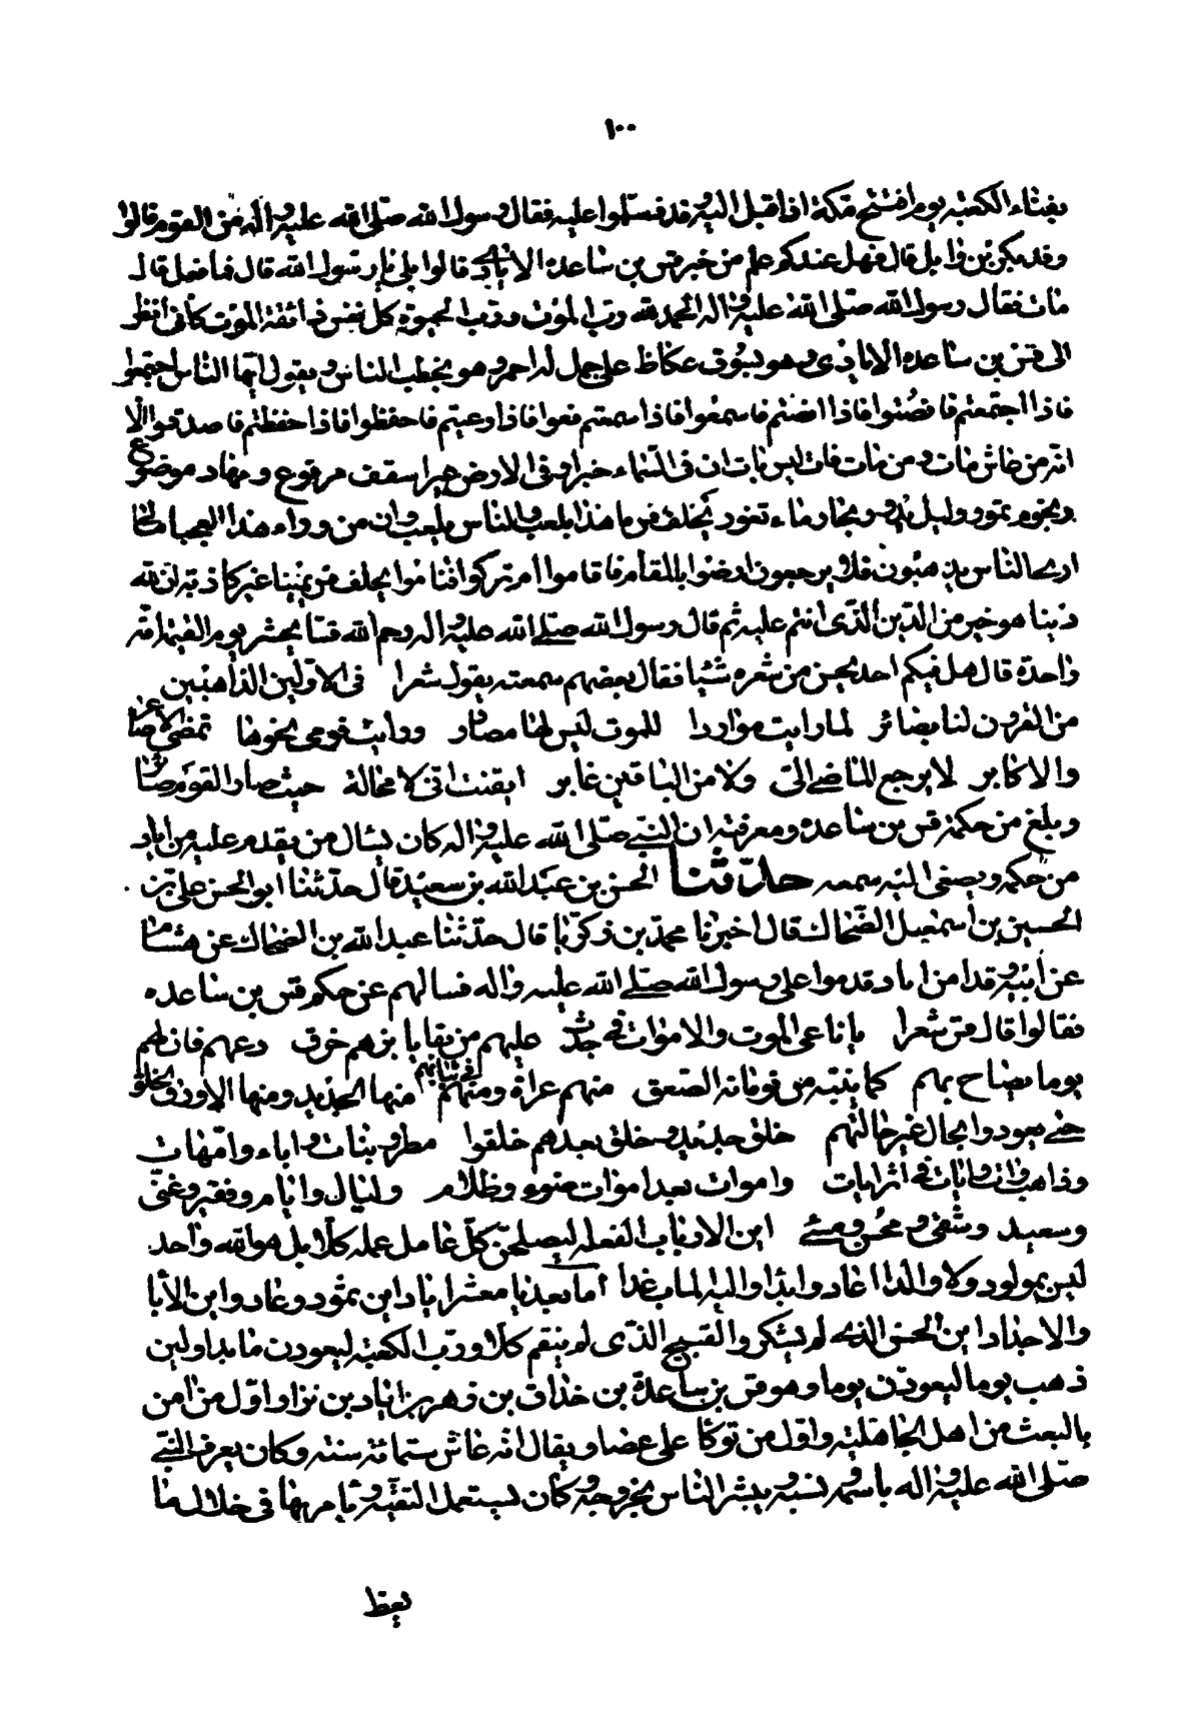 ١٠٠
بفناء الكعبة يوم افتتح مكة اذا قبل اليه وفد فسلموا عليه فقال رسول الله صلى الله عليه واله من القوم قالوا
وفد بكر بن وايل قال فهل عندكم علم من خبر قس بن ساعدة الايادى قالوا بلى يا رسول الله قال فما فعل قال
مات فقال رسول الله صلى الله عليه واله الحمد لله رب الموت ورب الحيوة كل نفس ذائقة الموت كانى انظر
الى قس بن ساعدة الايادى وهو بسوق عكاظ على جمل له احمر وهو يخطب الناس ويقول ايها الناس اجتمعوا
فاذا اجتمعتم فانصتوا فاذا انصتم فاسمعوا فاذا سمعتم فعوا فاذا وعيتم فاحفظوا فاذا حفظتم فاصدقوا الا
انه من عاش مات ومن مات فات ليس بات ان فى السماء خبرا وفى الارض عبرا سقف مرفوع ومهاد موضوع
ونجوم تمور وليل يدور وبحار ماء تغور يحلف قس ما هذا بلعب وان من وراء هذا العجبا مالى
ارى الناس يذهبون فلا يرجعون ارضوا بالمقام فاقاموا ام تركوا فناموا يحلف قس يمينا غير كاذبة ان لله
دينا هو خير من الدين الذى انتم عليه ثم قال رسول الله صلى الله عليه واله رحم الله قسا يحشر يوم القيمة امة
واحدة قال هل فيكم احد يحسن من شعره شيئا فقال بعضهم سمعته يقول شعرا فى الاولين الذاهبين
من القرون لنا بصائر لما رايت مواردا للموت ليس لها مصادر ورايت قومى نحوها تمضى الاصاغر
والاكابر لا يرجع الماضى الى ولا من الباقين غابر ايقنت انى لا محالة حيث صار القوم صائر
وبلغ من حكمة قس بن ساعدة ومعرفته ان النبى صلى الله عليه واله كان يسال من يقدم عليه من اياد
من حكمه ويصغى اليه سمعه حدثنا الحسن بن عبد الله بن سعيد قال حدثنا ابو الحسن على بن
الحسين بن اسمعيل الضحاك قال اخبرنا محمد بن زكريا قال حدثنا عبد الله بن الضحاك عن هشام
عن ابيه ان وفدا من اياد قدموا على رسول الله صلى الله عليه واله فسالهم عن حكم قس بن ساعدة
فقالوا قال قس شعرا يا ناعى الموت والاموات فى جدث عليهم من بقايا بزهم خرق دعهم فان لهم
يوما يصاح بهم كما ينبه من نوماته الصعق منهم عراة ومنهم فى ثيابهم منها الجديد ومنها الاورق الخلق
حتى يعودوا بحال غير حالتهم خلق جديد وخلق بعدهم خلقوا مطر ونبات واباء وامهات
وذاهب وات وايات فى اثر ايات واموات بعد اموات ضوء وظلام وليال وايام وفقير وغنى
وسعيد وشقى ومحسن ومسئ اين الارباب الفعلة ليصلحن كل عامل عمله كلا بل هو الله واحد
ليس بمولود ولا والد اعاد وابدا واليه الماب غدا اما بعد يا معشر اياد اين ثمود وعاد واين الابا
والاجداد اين الحسن الذى لم يشكر والقبيح الذى لم ينقم كلا ورب الكعبة ليعودن ما بدا ولين
ذهب يوما ليعودن يوما وهو قس بن ساعدة بن حذاق بن زهر بن اياد بن نزار اول من امن
بالبعث من اهل الجاهلية واول من توكا على عصا ويقال انه عاش ستمائة سنة وكان يعرف النبى
صلى الله عليه واله باسمه ونسبه ويبشر الناس بخروجه وكان يستعمل التقية ويامر بها فى خلال ما
يعظ